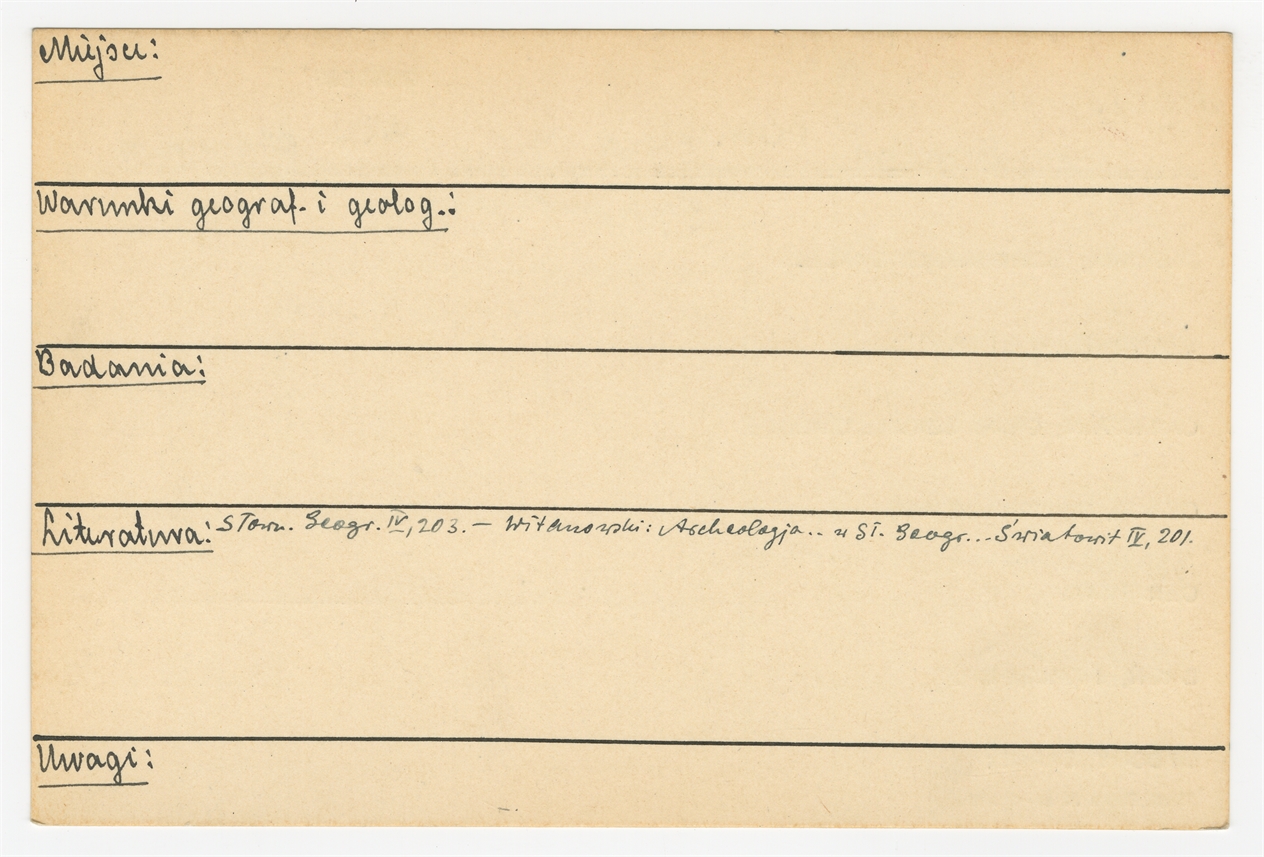 Miejsce:
Warunki geograf. i geolog.:
Badania:
Literatura: Słown. Geogr. IV, 203. — Witanowski: Archeologja.. w Sł. Geogr... Światowit IV, 201.
Uwagi: